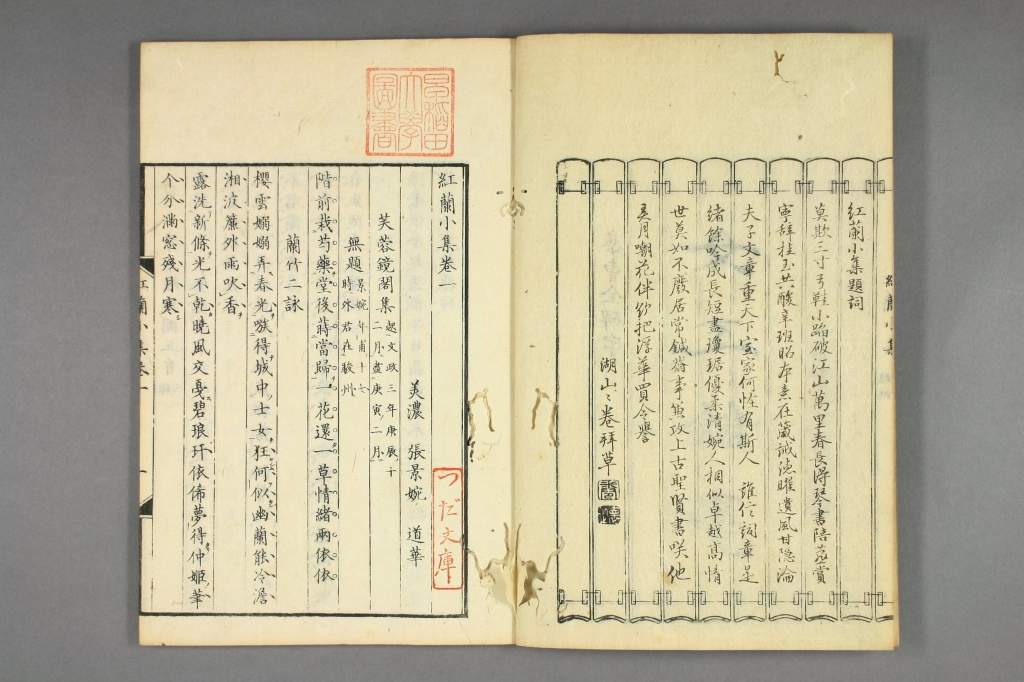 紅蘭小集題詞
莫欺三寸弓鞋小踏破江山萬里春長得琴書陪燕賞
寧辞桂玉共酸辛班昭本意在箴誡德曜遺風甘隠淪
夫子文章重天下室家何恠有斯人 誰信詞章是
緒餘吟成長短盡瓊琚優柔清婉人相似卓越高情
世莫如不廢居常鍼黹事兼攻上古聖賢書咲他
弄月嘲花伴紛把浮華買令譽
湖山〻巻拜草
早稲田大學圖書
紅蘭小集卷一
つだ文庫
美濃 張景婉 道華
芙蓉鏡閣集 起文政三年庚辰十二月盡庚寅二月
無題 景婉年甫十七時外君在駿州
階前栽芍藥堂後蒔當歸一花還一草情緒兩依依
蘭竹二詠
櫻雲嫋嫋弄春光簇得城中士女狂何似幽蘭能冷澹
湘波簾外雨吹香
露洗新條光不乾曉風交戞碧琅玕依俙夢得仲姬筆
个分滿窓殘月寒
紅蘭小集卷一